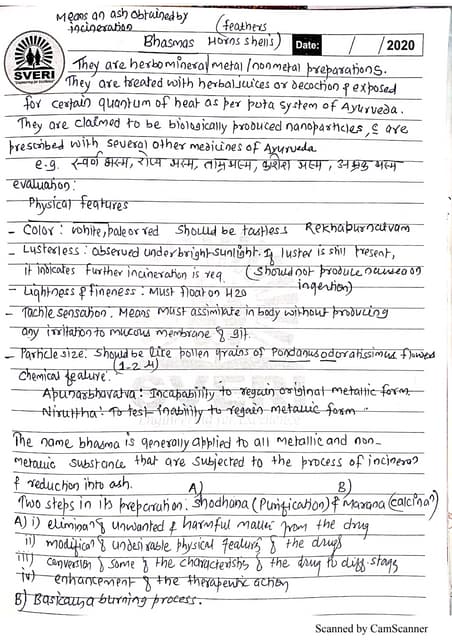 Means an ash obtained by
incineration
(feathers
Horns shells)
Bhasmas
Date: / / 2020
SVERI
They are herbomineral metal/nonmetal preparations.
They are treated with herbal juices or decoction & exposed
for certain quantum of heat as per puta system of Ayurveda.
They are claimed to be biologically produced nanoparticles, & are
prescribed with several other medicines of Ayurveda
e.g. स्वर्ण भस्म, रौप्य भस्म, ताम्र भस्म, भस्म, अभ्रक भस्म
evaluation:
Physical features
- Color: white, pale or red should be tastless Rekhapurnatvam
- Lusterless: Observed under bright sunlight. If luster is still present,
it indicates further incineration is req. (Should not produce nausea on
ingertion)
- Lightness & fineness: Must float on H2O
- Tactile sensation. Means must assimilate in body without producing
any irritation to mucous membrane of git.
- Particle size: Should be like pollen grains of Pandanus odoratissimus flower
(1-2 µ)
Chemical feature:
Apunarbhavatva: Incapability to regain original metallic form.
Niruttha: To test inability to regain metallic form
The name bhasma is generally applied to all metallic and non-
metallic substance that are subjected to the process of incineran
& reduction into ash.
A) B)
Two steps in its preparation: Shodhana (Purification) & Marana (calcinan)
A) i) eliminan of unwanted & harmful matter from the drug
ii) modifican of undesirable physical feature of the drugs
iii) conversion of some of the characterishs of the drug to diff. stags
iv) enhancement of the therapeutic action
B) Basically a burning process.
Scanned by CamScanner